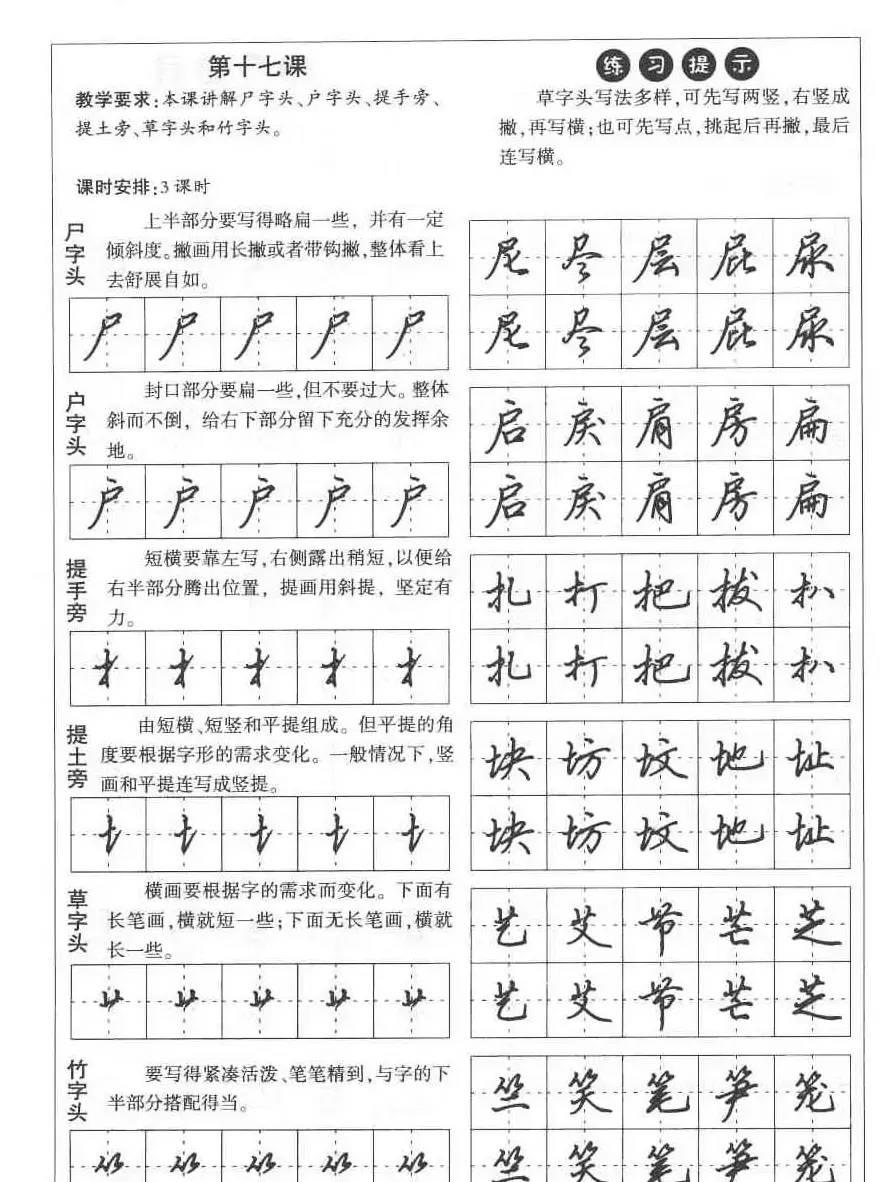 第十七课
教学要求:本课讲解尸字头、户字头、提手旁、
提土旁、草字头和竹字头。
课时安排:3课时
练习提示
草字头写法多样,可先写两竖,右竖成
撇,再写横;也可先写点,挑起后再撇,最后
连写横。
尸字头
上半部分要写得略扁一些，并有一定
倾斜度。撇画用长撇或者带钩撇,整体看上
去舒展自如。
尸尸尸尸尸
尾尽层屁尿
尾尽层屁尿
户字头
封口部分要扁一些,但不要过大。整体
斜而不倒，给右下部分留下充分的发挥余
地。
户户户户户
启戾肩房扁
启戾肩房扁
提手旁
短横要靠左写,右侧露出稍短,以便给
右半部分腾出位置，提画用斜提，坚定有
力。
扌扌扌扌扌
扎打把拔扒
扎打把拔扒
提土旁
由短横、短竖和平提组成。但平提的角
度要根据字形的需求变化。一般情况下,竖
画和平提连写成竖提。
块坊坟地址
块坊坟地址
草字头
横画要根据字的需求而变化。下面有
长笔画,横就短一些;下面无长笔画,横就
长一些。
艹艹艹艹艹
艺艾节芒芝
艺艾节芒芝
竹字头
要写得紧凑活泼、笔笔精到,与字的下
半部分搭配得当。
竺笑笔笋笼
竺笑笔笋笼